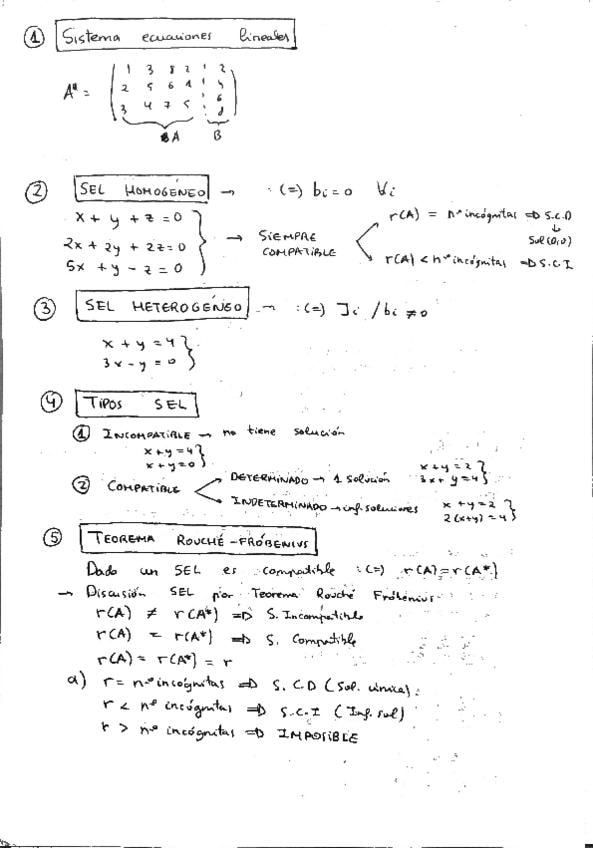 ① Sistema ecuaciones lineales
1 3 8 2 2
A* = 2 5 6 1
3 4 7 5
A B
② SEL HOMOGÉNEO → :(=) bi=0 ∀i
x + y + z = 0
2x + 2y + 2z = 0
5x + y - z = 0
→ SIEMPRE COMPATIBLE
r(A) = nº incógnitas => S.C.D
↓
Sol (0,0)
r(A) < nº incógnitas => S.C.I
③ SEL HETEROGÉNEO → :(=) ∃i / bi ≠ 0
x + y = 4
3x - y = 0
④ TIPOS SEL
① INCOMPATIBLE → no tiene solución
x+y=4
x+y=0
② COMPATIBLE
DETERMINADO → 1 solución x+y=2
3x+y=4
INDETERMINADO → inf. soluciones x+y=2
2(x+y)=4
⑤ TEOREMA ROUCHÉ-FRÓBENIUS
Dado un SEL es compatible :(=) r(A)=r(A*)
→ Discusión SEL por Teorema Rouché Fróbenius.
r(A) ≠ r(A*) => S. Incompatible
r(A) = r(A*) => S. Compatible
r(A) = r(A*) = r
a) r = nº incógnitas => S.C.D (Sol. única).
r < nº incógnitas => S.C.I (Inf. sol)
r > nº incógnitas => IMPOSIBLE